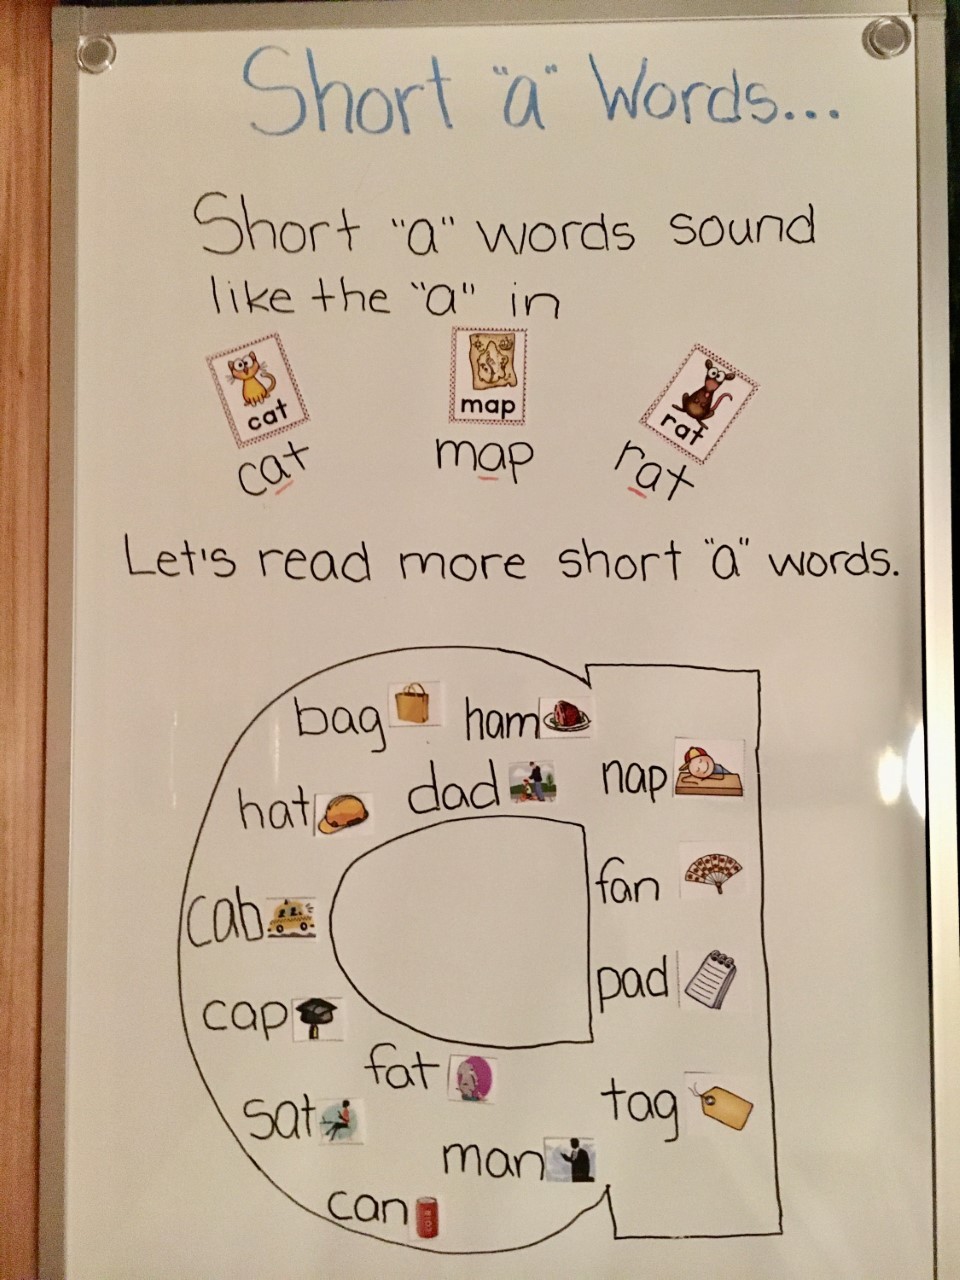 Short "a" Words...
Short "a" words sound
like the "a" in
cat map rat
cat map rat
Let's read more short "a" words.
bag ham
hat dad nap
cab fan
cap pad
fat
sat tag
man
can